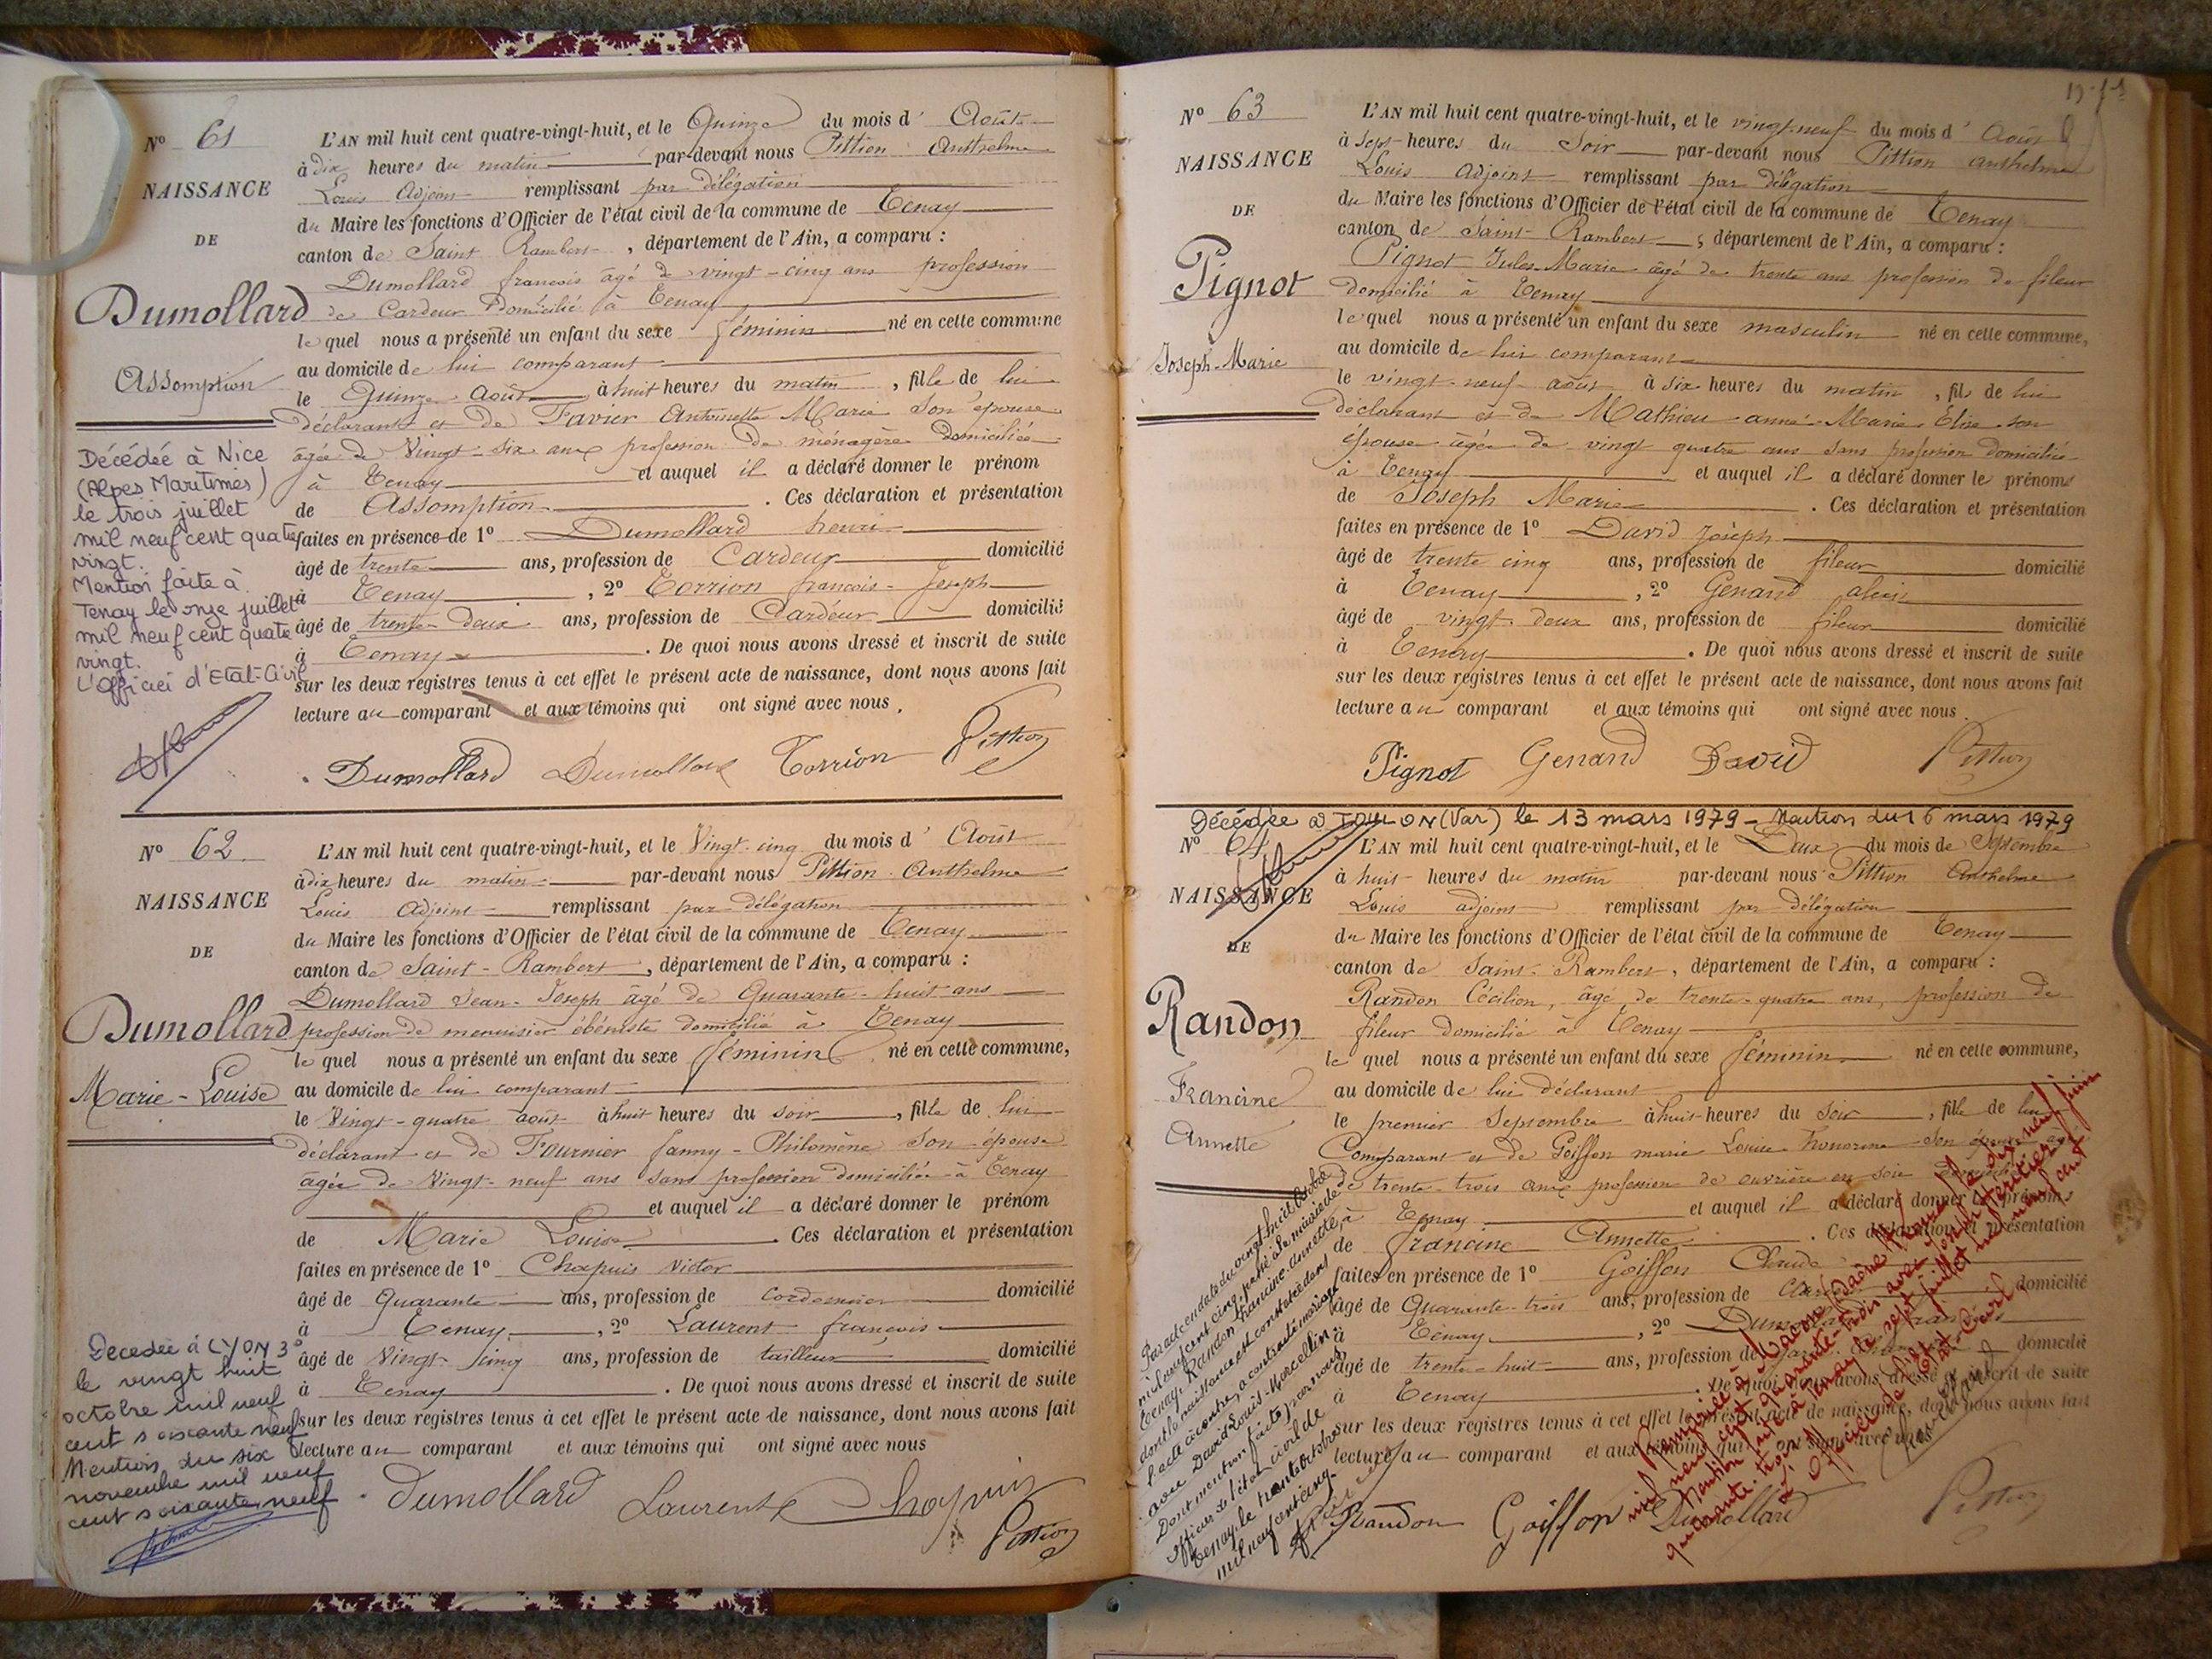 Nº 61
NAISSANCE
DE
Dumollard
Assomption
Décédée à Nice
(Alpes Maritimes)
le trois juillet
mil neuf cent quatre
vingt.
Mention faite à
Tenay le onze juillet
mil neuf cent quatre
vingt.
L'Officier d'Etat-Civil
L'AN mil huit cent quatre-vingt-huit, et le Quinze du mois d' Août
à dix heures du matin par-devant nous Pittion Anthelme
Louis Adjoint remplissant par délégation
du Maire les fonctions d'Officier de l'état civil de la commune de Tenay
canton de Saint Rambert, département de l'Ain, a comparu :
Dumollard francois âgé de vingt-cinq ans profession
de Cardeur Domicilié à Tenay
lequel nous a présenté un enfant du sexe féminin né en cette commune
au domicile de lui comparant
le Quinze Août à huit heures du matin, fille de lui
déclarant et de Favier Antoinette Marie Son épouse
âgée de Vingt-six ans profession de ménagère domiciliée
à Tenay et auquel il a déclaré donner le prénom
de Assomption. Ces déclaration et présentation
faites en présence de 1º Dumollard henri
âgé de trente ans, profession de Cardeur domicilié
à Tenay, 2º Torrion francois-Joseph
âgé de trente-deux ans, profession de Cardeur domicilié
à Tenay. De quoi nous avons dressé et inscrit de suite
sur les deux registres tenus à cet effet le présent acte de naissance, dont nous avons fait
lecture au comparant et aux témoins qui ont signé avec nous.
Dumollard Dumollard Torrion Pittion
Nº 62
NAISSANCE
DE
Dumollard
Marie-Louise
Decedée à LYON 3º
le vingt huit
octobre mil neuf
cent soixante neuf
Mention du six
novembre mil neuf
cent soixante neuf
L'AN mil huit cent quatre-vingt-huit, et le Vingt-cinq du mois d' Août
à dix heures du matin par-devant nous Pittion Anthelme
Louis Adjoint remplissant par délégation
du Maire les fonctions d'Officier de l'état civil de la commune de Tenay
canton de Saint-Rambert, département de l'Ain, a comparu :
Dumollard Jean-Joseph âgé de Quarante-huit ans
profession de menuisier ébéniste domicilié à Tenay
lequel nous a présenté un enfant du sexe féminin né en cette commune,
au domicile de lui comparant
le Vingt-quatre août à huit heures du soir, fille de lui
déclarant et de Fournier fanny-Philomène Son épouse
âgée de Vingt-neuf ans sans profession domiciliée à Tenay
et auquel il a déclaré donner le prénom
de Marie Louise. Ces déclaration et présentation
faites en présence de 1º Chapuis Victor
âgé de Quarante ans, profession de cordonnier domicilié
à Tenay, 2º Laurent francois
âgé de Vingt-cinq ans, profession de tailleur domicilié
à Tenay. De quoi nous avons dressé et inscrit de suite
sur les deux registres tenus à cet effet le présent acte de naissance, dont nous avons fait
lecture au comparant et aux témoins qui ont signé avec nous
Dumollard Laurent Chapuis
Pittion
Nº 63
NAISSANCE
DE
Pignot
Joseph-Marie
L'AN mil huit cent quatre-vingt-huit, et le vingt-neuf du mois d' Août
à Sept heures du Soir par-devant nous Pittion anthelme
Louis Adjoint remplissant par délégation
du Maire les fonctions d'Officier de l'état civil de la commune de Tenay
canton de Saint-Rambert, département de l'Ain, a comparu :
Pignot Jules-Marie âgé de trente ans profession de fileur
domicilié à Tenay
lequel nous a présenté un enfant du sexe masculin né en cette commune,
au domicile de lui comparant
le vingt-neuf août à six heures du matin, fils de lui
déclarant et de Mathieu anne-Marie Elise son
épouse âgée de vingt quatre ans sans profession domiciliée
à Tenay et auquel il a déclaré donner le prénoms
de Joseph Marie. Ces déclaration et présentation
faites en présence de 1º David Joseph
âgé de trente cinq ans, profession de fileur domicilié
à Tenay, 2º Genand alexis
âgé de vingt-deux ans, profession de fileur domicilié
à Tenay. De quoi nous avons dressé et inscrit de suite
sur les deux registres tenus à cet effet le présent acte de naissance, dont nous avons fait
lecture au comparant et aux témoins qui ont signé avec nous.
Pignot Genand David Pittion
Décédée à TOULON (Var) le 13 mars 1979 - Mention du 16 mars 1979
Nº 64
NAISSANCE
DE
Randon
Francine
Annette
L'AN mil huit cent quatre-vingt-huit, et le Deux du mois de Septembre
à huit heures du matin par-devant nous Pittion Anthelme
Louis adjoint remplissant par délégation
du Maire les fonctions d'Officier de l'état civil de la commune de Tenay
canton de Saint-Rambert, département de l'Ain, a comparu :
Randon Cécilien, âgé de trente-quatre ans, profession de
fileur domicilié à Tenay
lequel nous a présenté un enfant du sexe féminin né en cette commune,
au domicile de lui déclarant
le premier Septembre à huit heures du Soir, fille de lui
Comparant et de Goiffon marie Louise honorine Son épouse âgée
de trente-trois ans profession de ouvrière en soie domiciliée
à Tenay et auquel il a déclaré donner les prénoms
de francine Annette. Ces déclaration et présentation
faites en présence de 1º Goiffon Claude
âgé de Quarante-trois ans, profession de domicilié
à Tenay, 2º Dumollard francois
âgé de trente-huit ans, profession de domicilié
à Tenay. De quoi nous avons dressé et inscrit de suite
sur les deux registres tenus à cet effet le présent acte de naissance, dont nous avons fait
lecture au comparant et aux témoins qui ont signé avec nous
Randon Goiffon Dumollard Pittion
Par acte en date du vingt huit octobre
mil neuf cent cinq, passé à la mairie de
Tenay, Randon Francine-Annette,
dont la naissance est constatée dans
l'acte ci-contre, a contracté mariage
avec David Louis-Marcellin.
Dont mention faite par nous
officier de l'état civil de
Tenay, le trente octobre
mil neuf cent cinq.
Remariée à Macon (Saône) le dix neuf juin
mil neuf cent quarante-trois avec Héritier
Mention faite à Tenay le sept juillet mil neuf cent
quarante-trois
L'Officier de l'Etat-Civil